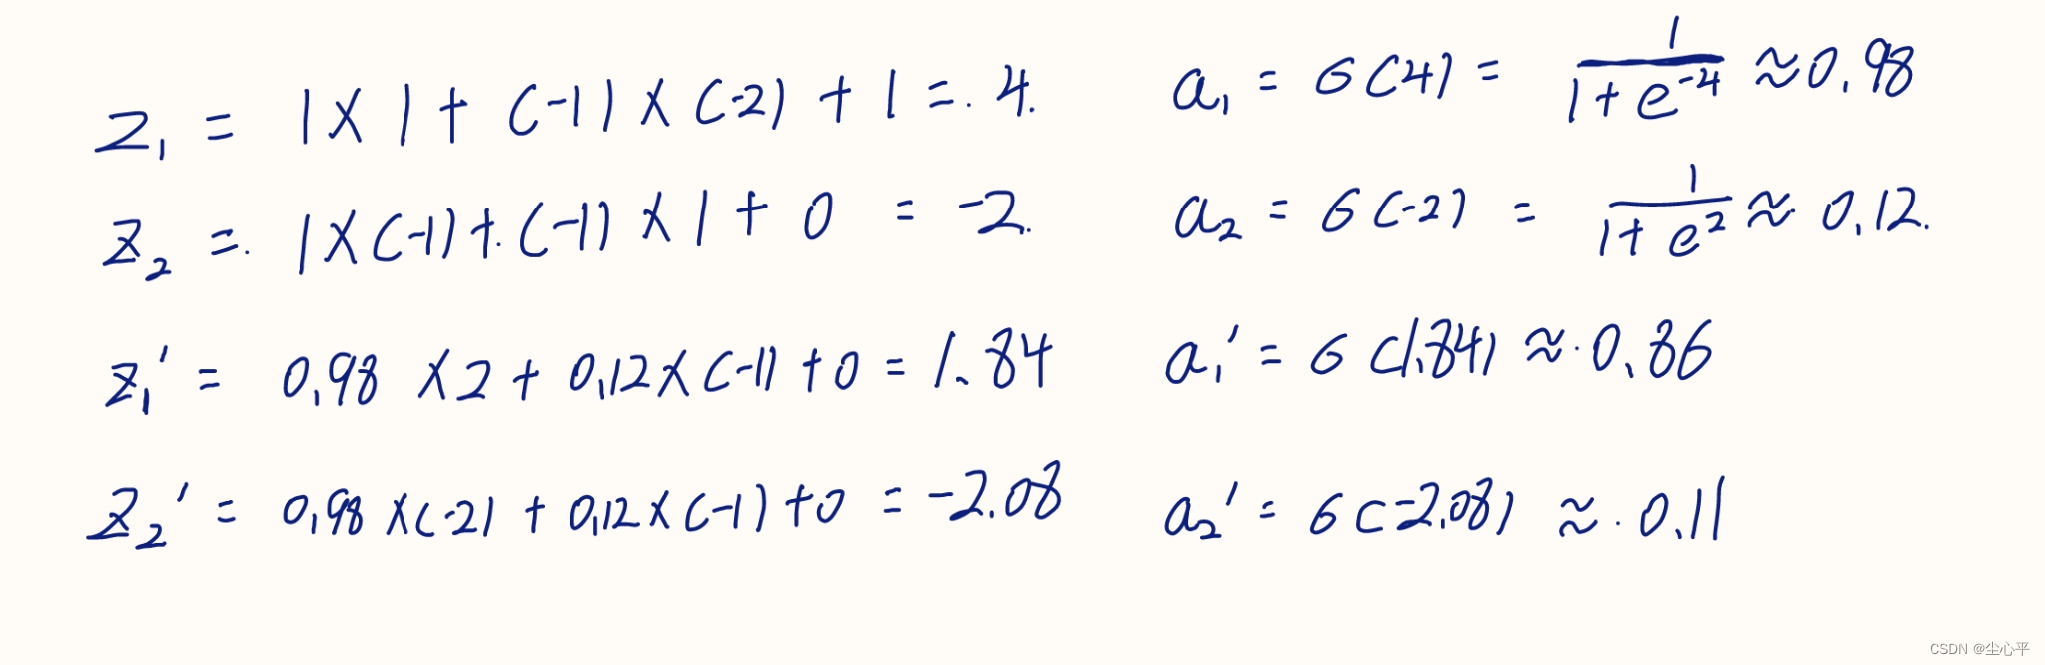 z₁ = 1 × 1 + (-1) × (-2) + 1 = 4. a₁ = σ(4) = 1/(1+e⁻⁴) ≈ 0.98
z₂ = 1 × (-1) + (-1) × 1 + 0 = -2. a₂ = σ(-2) = 1/(1+e²) ≈ 0.12.
z₁' = 0.98 × 2 + 0.12 × (-1) + 0 = 1.84 a₁' = σ(1.84) ≈ 0.86
z₂' = 0.98 × (-2) + 0.12 × (-1) + 0 = -2.08 a₂' = σ(-2.08) ≈ 0.11
CSDN @尘心平